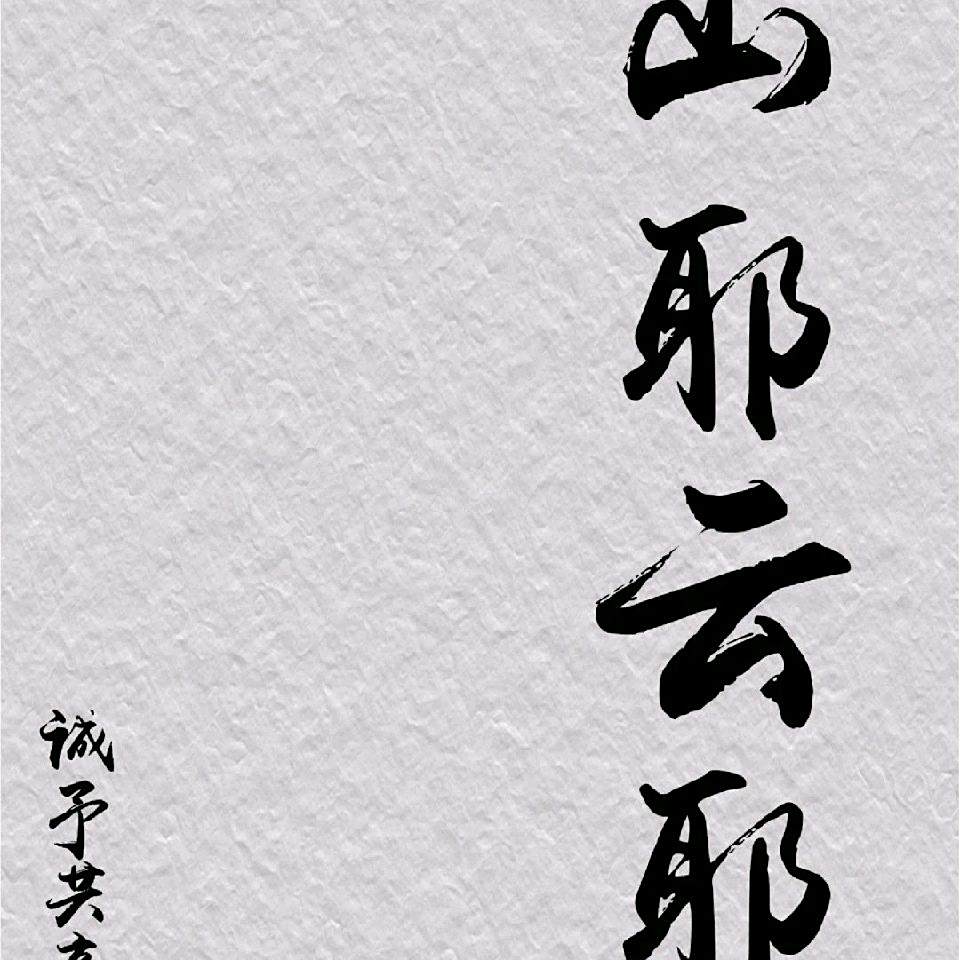 山耶云耶
诚予共